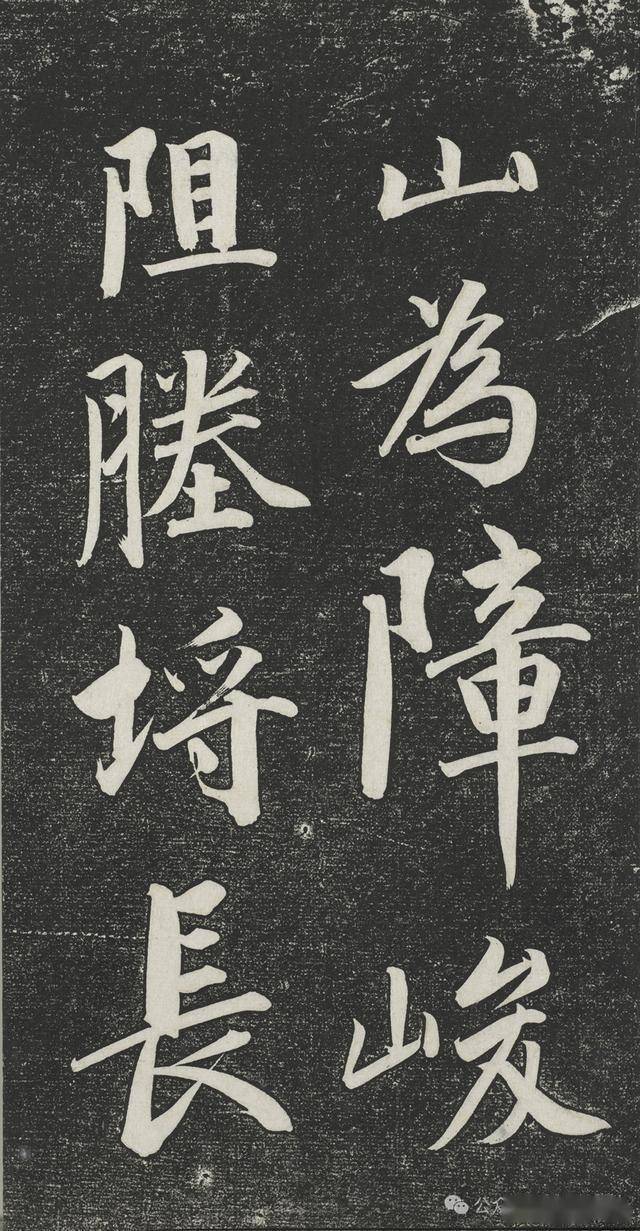 山為障峻
阻塍埒長
公